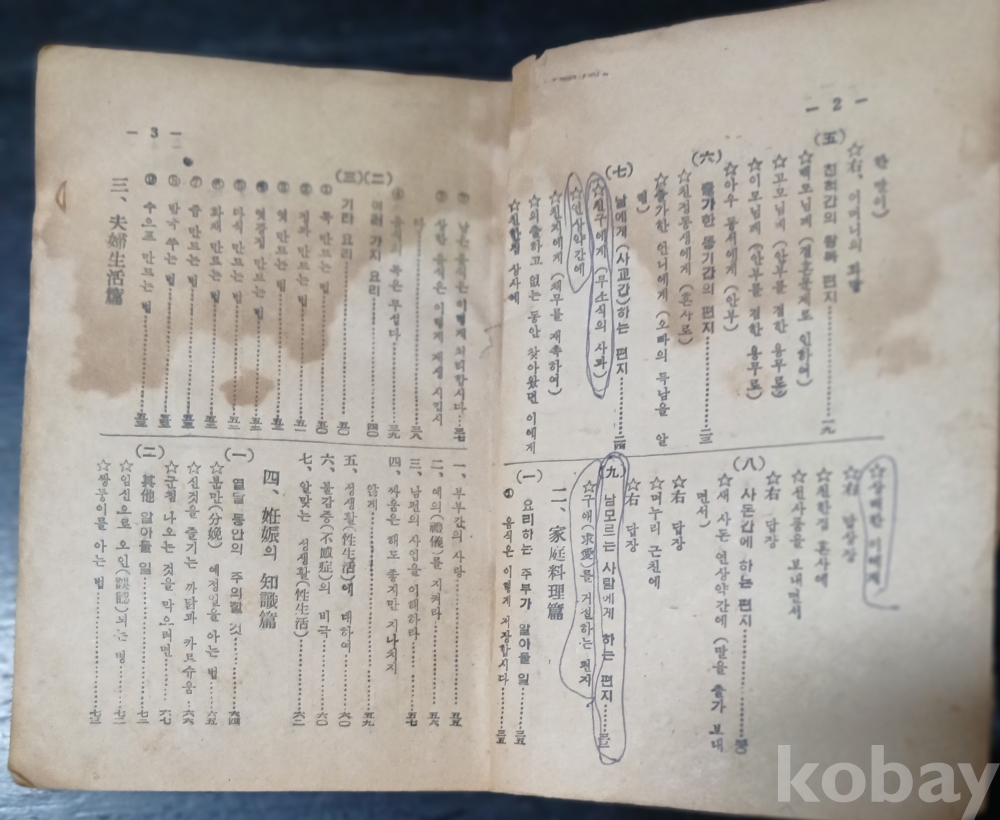 — 2 —
한 말이)
☆右、어머니의 회답
(五) 친척간의 왕복 편지……一九
☆백모님께 (결혼문제로 인하여)
☆고모님께 (안부를 겸한 용무로)
☆이모님께 (안부를 겸한 용무로)
☆아우 동서에게 (안부)
(六) 출가한 동기간의 편지……二三
☆친정동생에게 (혼사로)
☆출가한 언니에게 (오빠의 득남을 알
(七) 남에게 (사교간)하는 편지……二四
☆친구에게 (무소식의 사과)
☆연상약간에
☆친지에게 (채무를 재촉하여)
☆외출하고 없는 동안 찾아왔던 이에게
☆친한집 상사에
☆상배한 이에게
☆右 답상장
☆친한집 혼사에
☆선사품을 보내면서
☆右 답장
(八) 사돈간에 하는 편지……
☆새 사돈 연상약간에 (딸을 출가 보내
면서)
☆右 답장
☆며누리 근친에
☆右 답장
(九) 남모르는 사람에게 하는 편지…三二
☆구애(求愛)를 거절하는 편지
二、家庭料理篇
(一) 요리하는 주부가 알아둘 일……三五
❶ 음식은 이렇게 저장합시다……三五
— 3 —
음식은 이렇게 처리합시다…三七
상한 음식은 이렇게 재생 시킵시
다……三八
독은 무섭다……三九
(二) 여러 가지 요리……四〇
(三) 기타 요리……五〇
❶ 묵 만드는 법……五〇
❷ 정과 만드는 법……五一
❸ 엿 만드는 법……五二
❹ 엿강정 만드는 법
❺ 다식 만드는 법
❻ 화채 만드는 법
❼ 즙 만드는 법
❽ 쑤는 법
❾ 수으로 만드는 법
三、夫婦生活篇
一、부부간의 사랑……五五
二、예의(禮儀)를 지켜라……五六
三、남편의 사업을 이해하라……五七
四、싸움은 해도 좋지만 지나치지
않게……五九
五、성생활(性生活)에 대하여……六〇
六、불감증(不感症)의 비극……六〇
七、알맞는 성생활(性生活)……六二
四、妊娠의 知識篇
(一) 열달 동안의 주의할 것……六四
☆분만(分娩) 예정일을 아는 법……六五
☆신것을 즐기는 까닭과 카르슈움…六六
☆군침 나오는 것을 막으려면……六七
(二) 其他 알아둘 일……七二
☆임신으로 오인(誤認)되는 병……七二
☆쌍둥이를 아는 법……七三
kobay